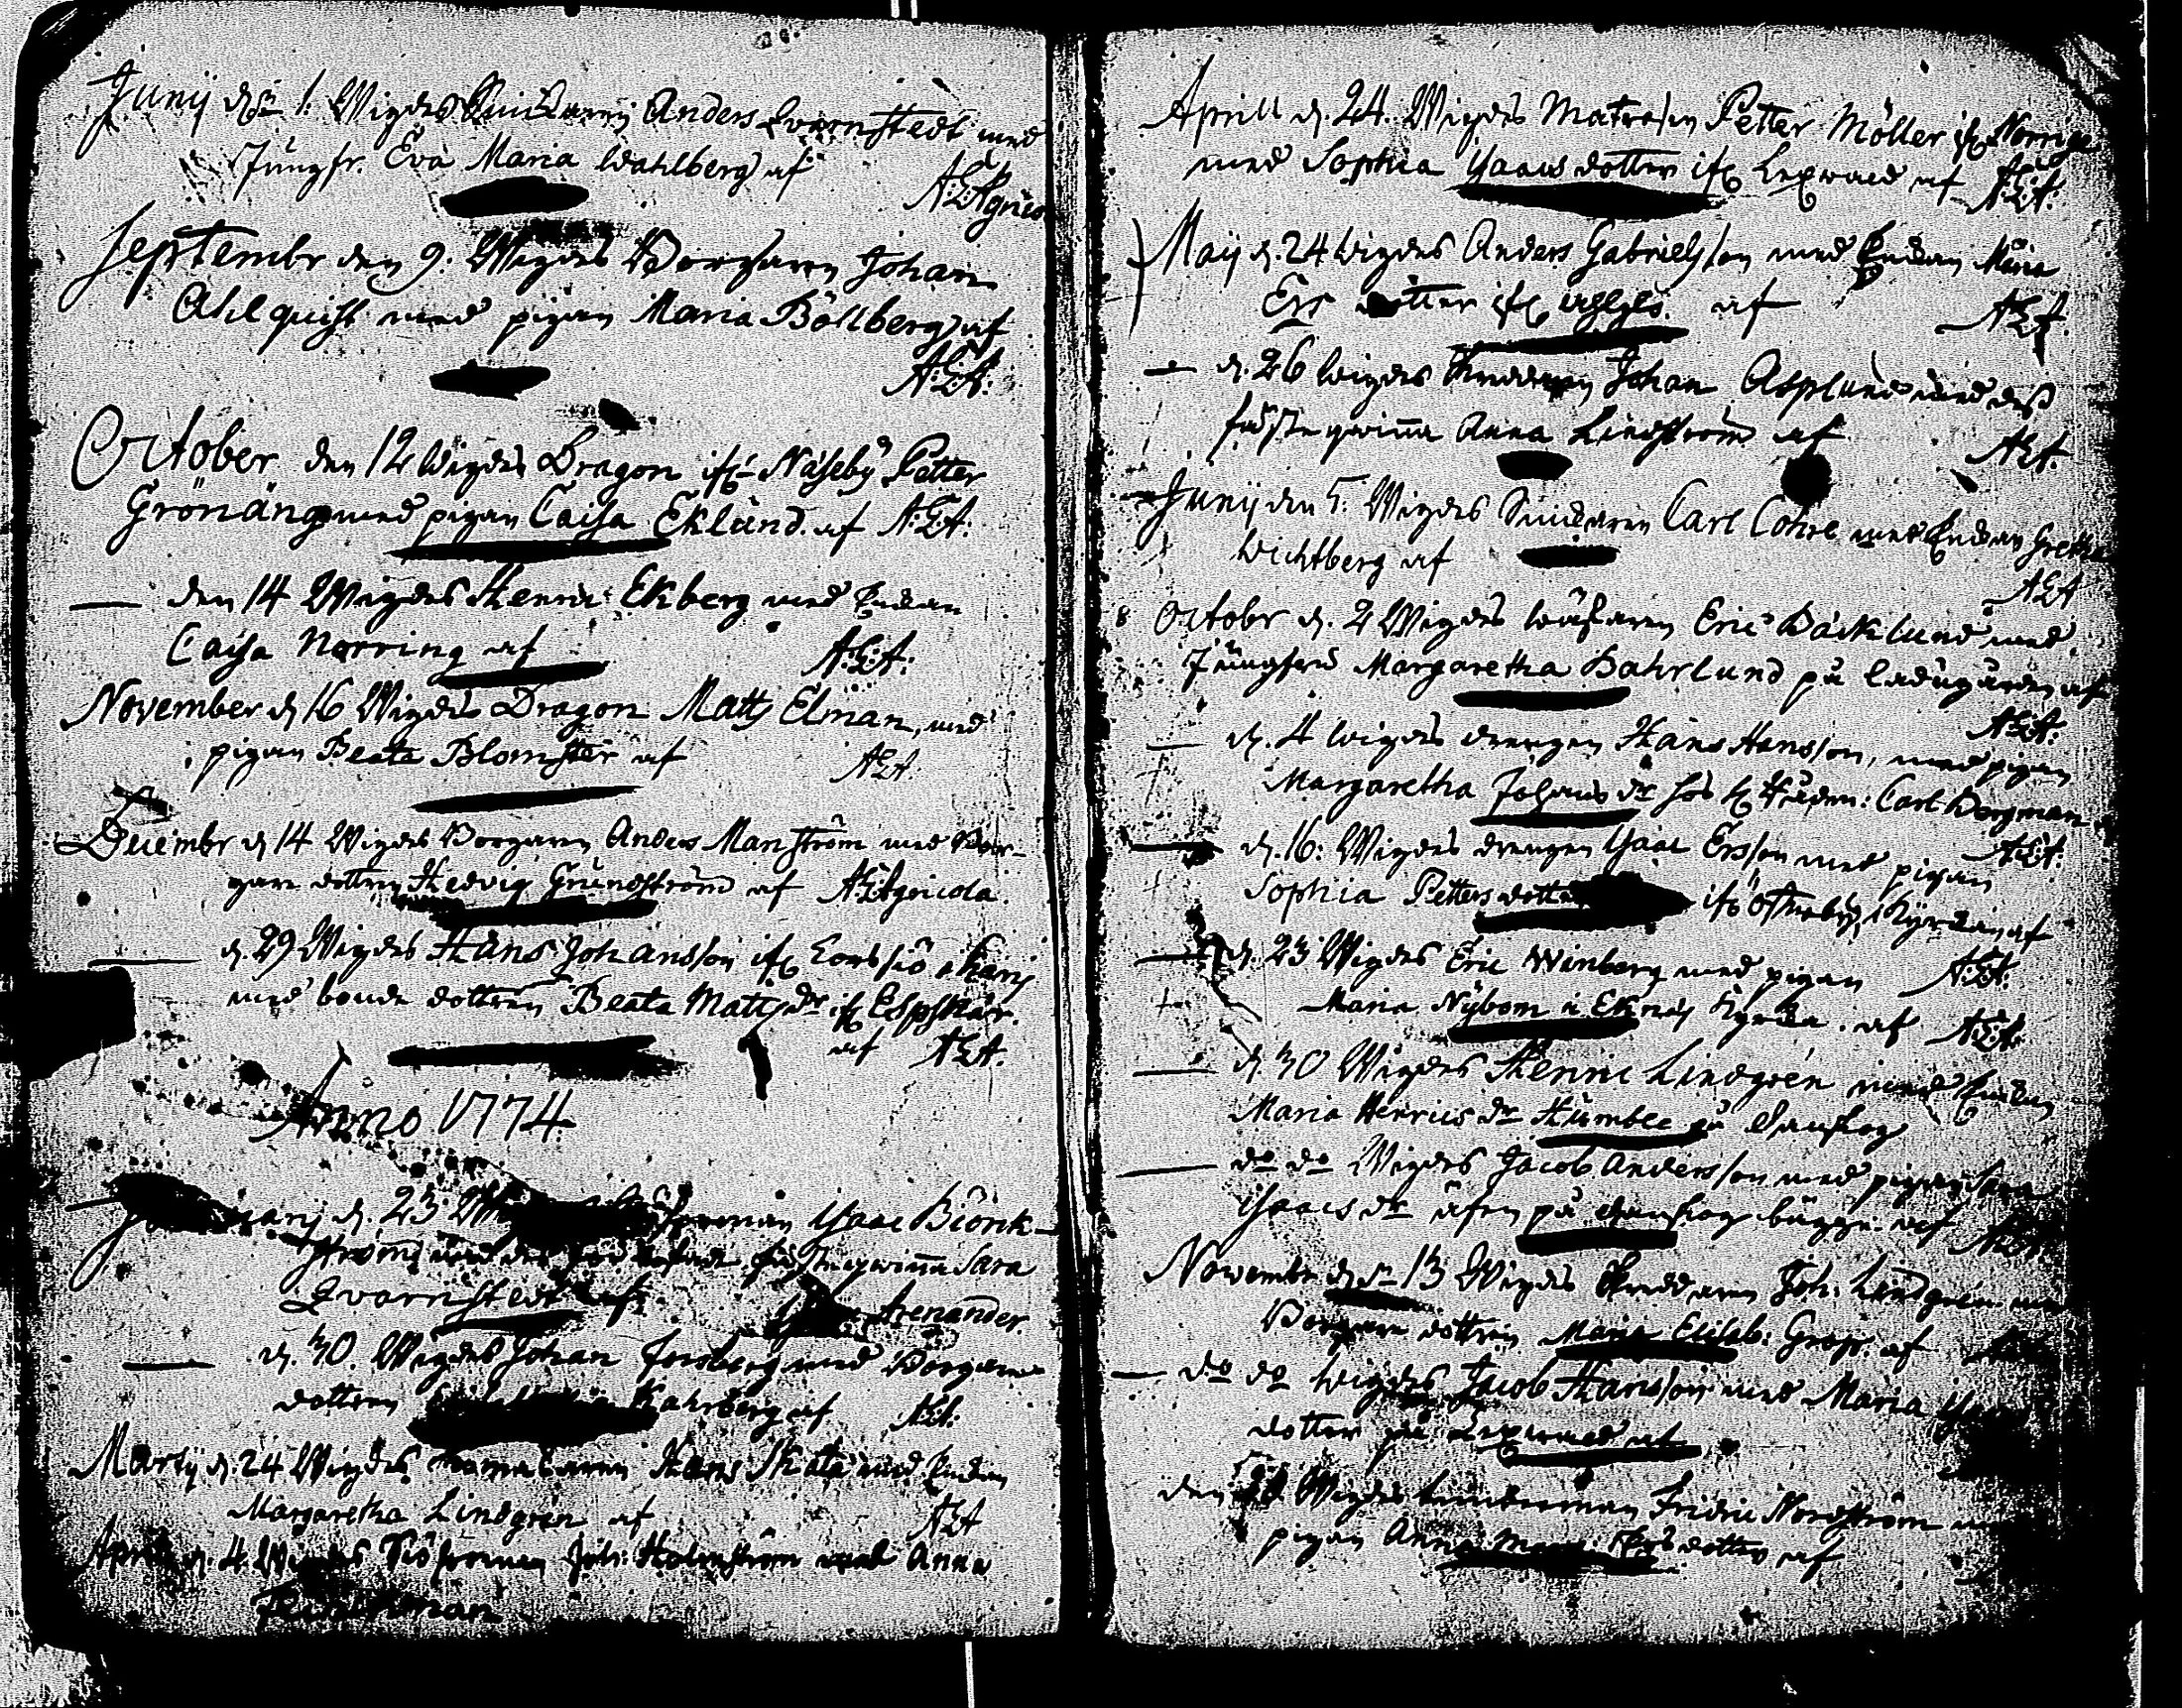 Junij d. 1. Wigdes Anders Qvarnstedt med
Jungfr. Eva Maria Wahlberg af A:E:Agric
Septembr den 9. Wigdes Borgaren Johan
Ahlquist med pigan Maria Böllberg af
A:E:A:
October den 12 Wigdes Dragon ifr. Näseby Petter
Grönäng med pigan Caisa Eklund. af A:E:A:
den 14 Wigdes Henric Ekberg med Enkan
Caisa Norring af A:E:A:
November d. 16 Wigdes Dragon Matts Elman, med
pigan Beata Blomster af AEA
Decembr d. 14 Wigdes Borgaren Anders Manström med Bor-
gare dottren Hedvig Grundström af A:E:Agricola.
d. 29 Wigdes Hans Johansson ifr.
med bonde dottren Beata Matts dr ifr. Espskär.
af AEA.
Anno 1774
d. 23 Isaac Biörk-
ström fästeqwinna Sara
Qvarnstedt af Arenander.
d. 30. Wigdes Johan Forsberg med Borgare
dottren Kahrberg af AEA.
Martij d. 24 Wigdes Hans Skata med Enkan
Margaretha Lindgren af AEA
April d. 4 Wigdes Joh: Holmström med Anna
Aprill d. 24. Wigdes Matrosen Petter Möller ifr. Norrige
med Sophia Isaacs dotter ifr. Lexwall af A:E:A:
Maij d. 24 Wigdes Anders Gabrielsson med Enkan Maria
Ers dotter ifr. af AEA.
d. 26 Wigdes Johan Asplund med dess
fästeqwinna Anna Lindström af AEA.
Junij den 5. Wigdes Carl Cohre med Enkan Gretha
Wichtberg af
AEA
8 Octobr d. 2 Wigdes Eric Bäcklund med
Jungfrun Margaretha Bahrlund på Ladugården af
AEA.
d. 4 Wigdes drengen Hans Hansson, med pigan
Margaretha Johans dr hos Carl Borgman
A:E:A:
d. 16: Wigdes drengen Isaac Ersson med pigan
Sophia Petters dotter ifr. Österby, i Kyrkan af
d. 23 Wigdes Eric Winberg med pigan A:E:A:
Maria Nybom i Eknäs Kyrka. af A:E:A:
d. 30 Wigdes Henric Lindgren med Enkan
Maria Henrics dr Humble på
do do Wigdes Jacob Andersson med pigan Sara
Isaacs dr äfven på bägge. af
Novembr den 13 Wigdes Joh: Lindgren med
Borgare dottren Maria Elisab: Grop. af
do do Wigdes Jacob Hansson med Maria
dotter på Lexwall af
den Wigdes timberman Fridric Nordström
pigan Anna dotter af